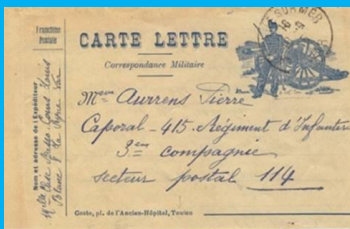 Franchise
Postale
CARTE LETTRE
Correspondance Militaire
SUR MER
Mr Aurrens Pierre
Caporal - 415 Régiment d'Infanterie
3em compagnie
secteur postal 114
Nom et adresse de l'Expéditeur
Louis
Blanc 8 La Seyne Var
Coste, pl. de l'Ancien-Hôpital, Toulon